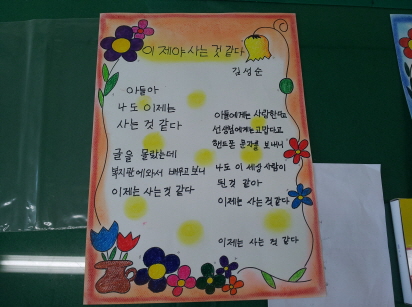 이제야 사는 것 같다
김성순
아들아
나도 이제는
사는 것 같다
글을 몰랐는데
복지관에 와서 배우고 보니
이제는 사는 것 같다
아들에게는 사랑한다고
선생님에게는 고맙다고
핸드폰 문자를 보내니
나도 이 세상 사람이
된것 같아
이제는 사는것 같다
이제는 사는 것 같다